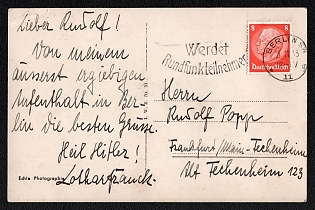 Lieber Rudolf!
Von meinem
äusserst ergiebigen
Aufenthalt in Ber-
lin die besten Grüsse.
Heil Hitler!
Lothar Franck.
Echte Photographie
Werdet
Rundfunkteilnehmer
BERLIN
11
8
Deutsches Reich
Herrn
Rudolf Popp
Frankfurt/Main-Fechenheim
Alt Fechenheim 123